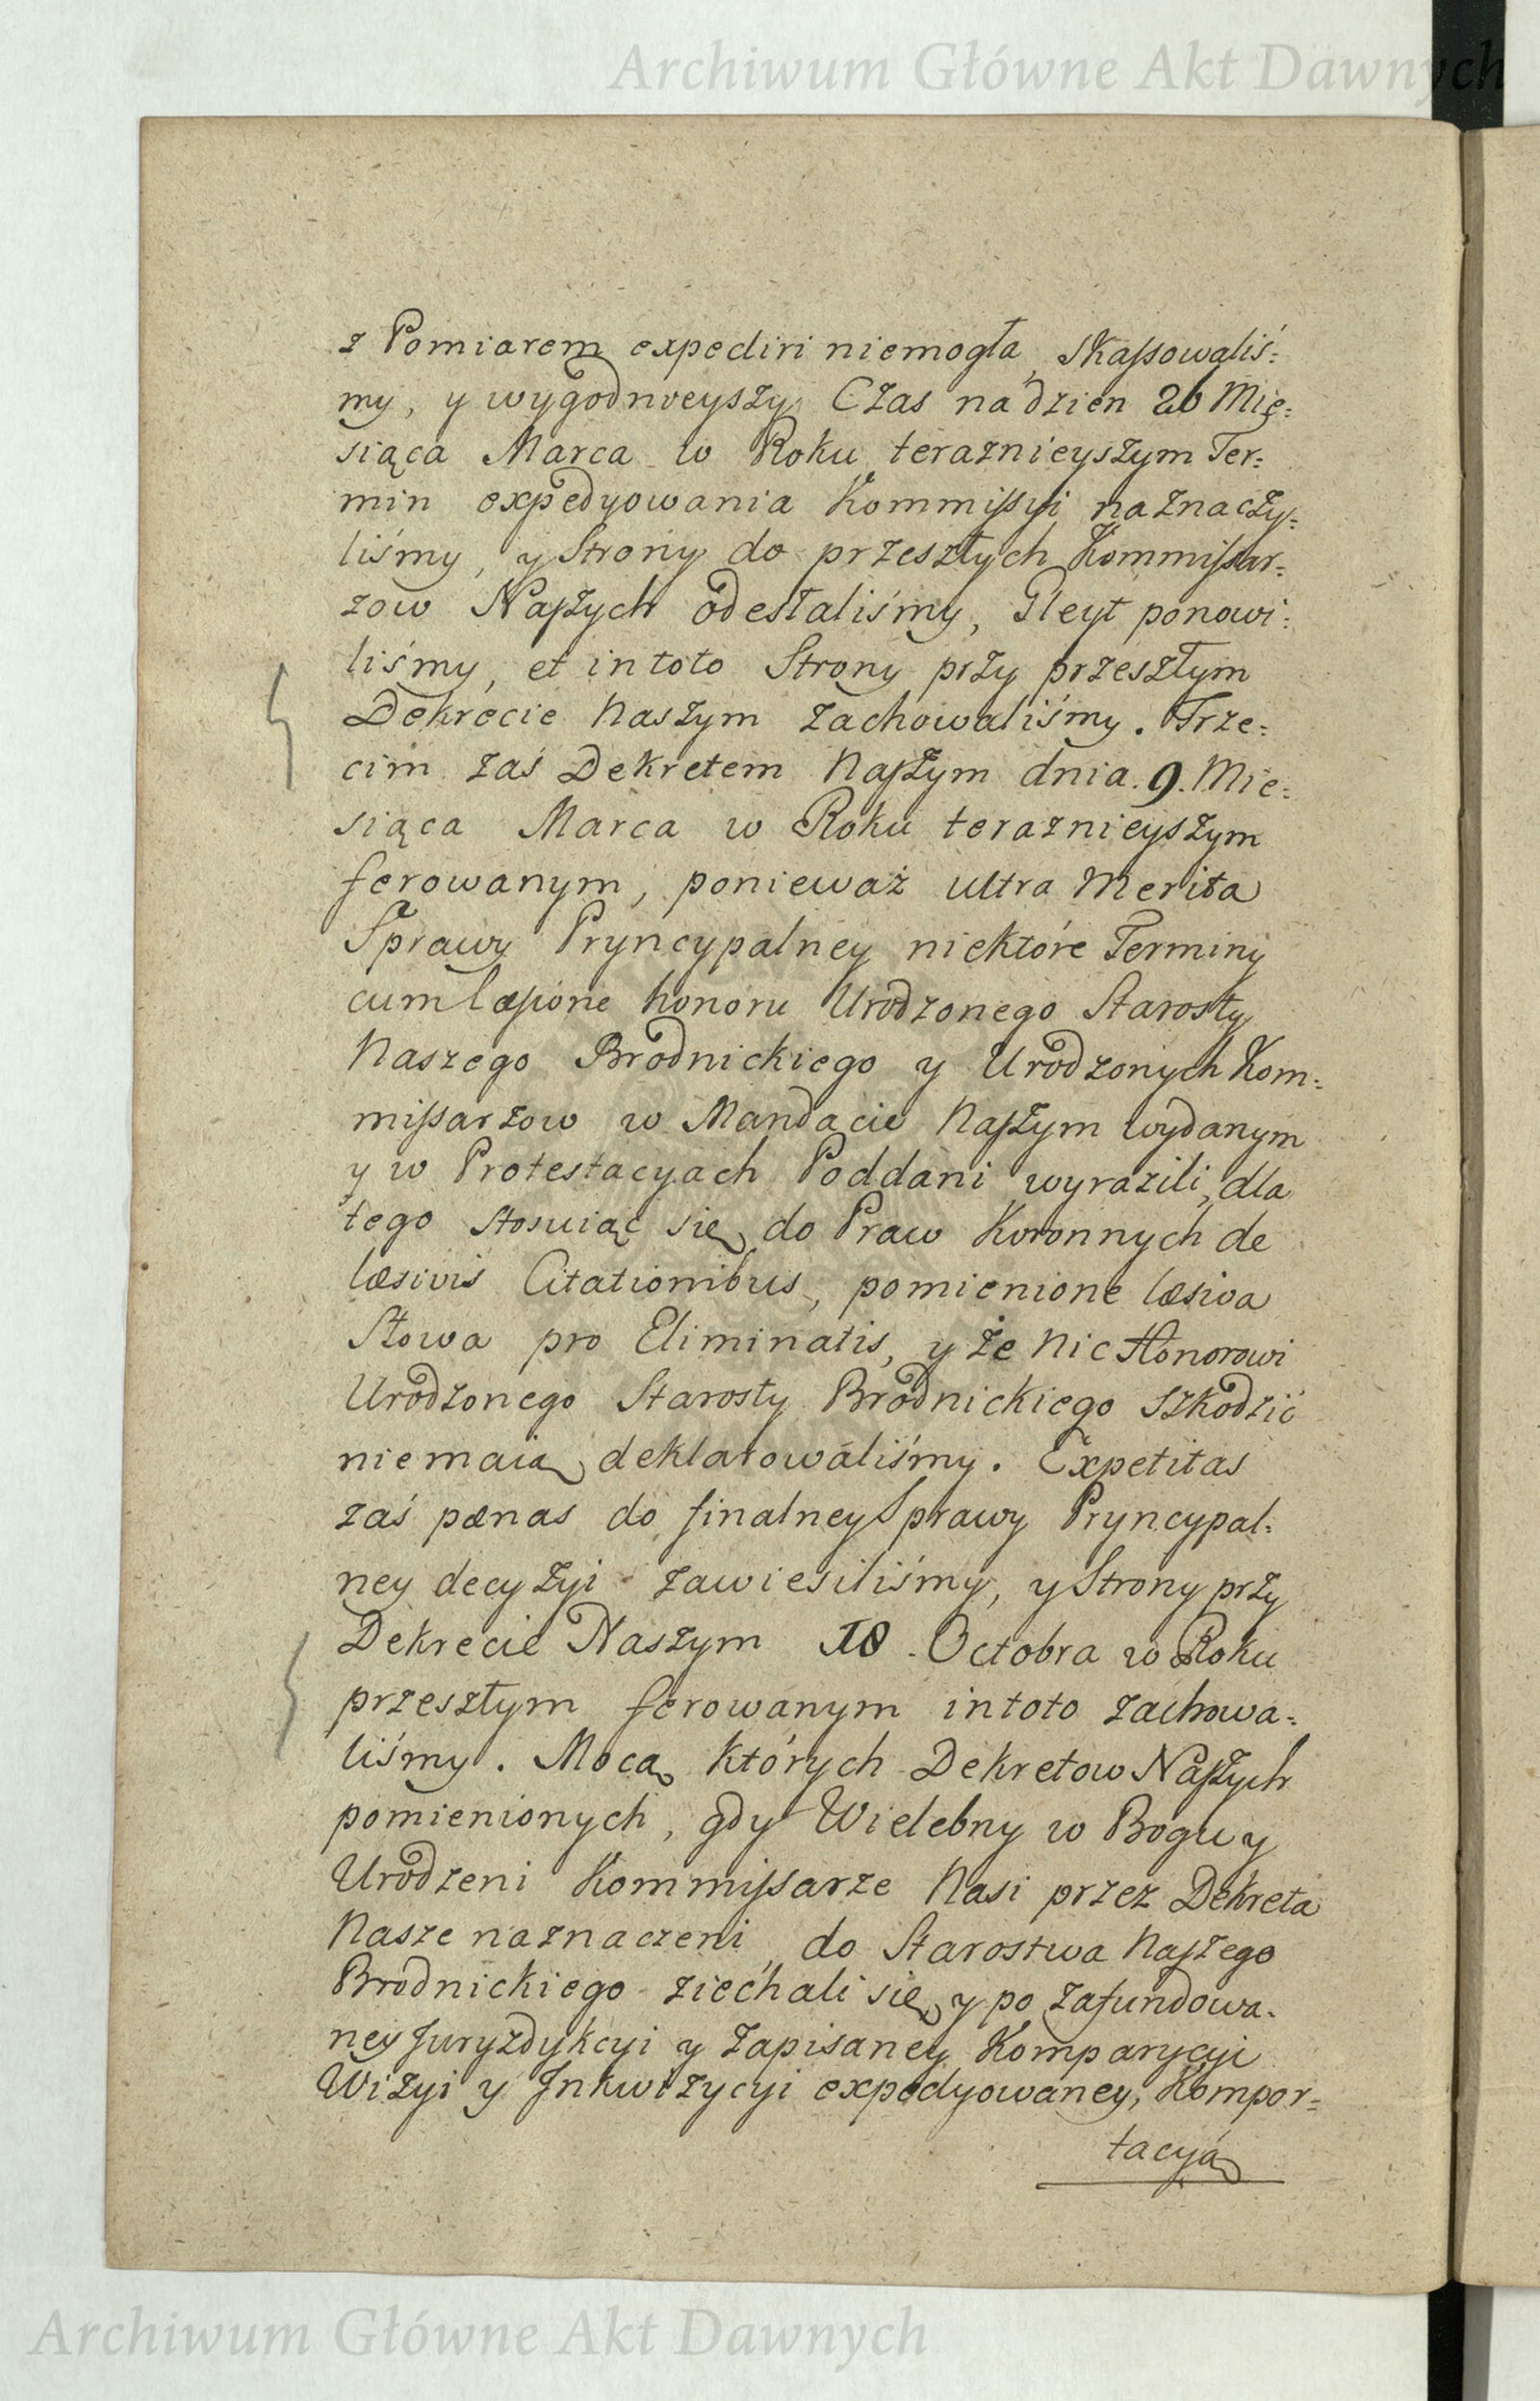 Archiwum Główne Akt Dawnych
z Pomiarem expediri niemogła, skaſsowaliś=
my, y wygodnieyszy Czas na dzien 26 Mie=
siąca Marca w Roku teraznieyszym Ter=
min expedyowania Kommiſsyi naznaczy=
liśmy, y Strony do przeszłych Kommiſsar=
zow Naſzych odesłaliśmy, Gleyt ponowi=
liśmy, et in toto Strony przy przeszłym
Dekrecie Naszym zachowaliśmy. Trze=
cim zaś Dekretem Naſzym dnia. 9. Mie=
siąca Marca w Roku teraznieyszym
ferowanym, ponieważ ultra Merita
Sprawy Pryncypalney niektóre Terminy
cum læſione honoru Urodzonego Starosty
Naszego Brodnickiego y Urodzonych Kom=
miſsarzow w Mandacie Naſzym wydanym
y w Protestacyach Poddani wyrazili, dla
tego stosuiąc się do Praw Koronnych de
læsivis Citationibus, pomienione læsiva
Słowa pro Eliminatis, y że nic Honorowi
Urodzonego Starosty Brodnickiego szkodzić
niemaią deklarowaliśmy. Expetitas
zaś pænas do finalney Sprawy Pryncypal=
ney decyzyi zawiesiliśmy, y Strony przy
Dekrecie Naszym 18. Octobra w Roku
przeszłym ferowanym in toto zachowa=
liśmy. Mocą których Dekretow Naſzych
pomienionych, gdy Wielebny w Bogu y
Urodzeni Kommiſsarze Nasi przez Dekreta
Nasze naznaczeni, do Starostwa Naſzego
Brodnickiego ziechali się, y po zafundowa=
ney Juryzdykcyi y zapisaney Komparycyi
Wizyi y Inkwizycyi expedyowaney, Kompor=
tacyą
Archiwum Główne Akt Dawnych